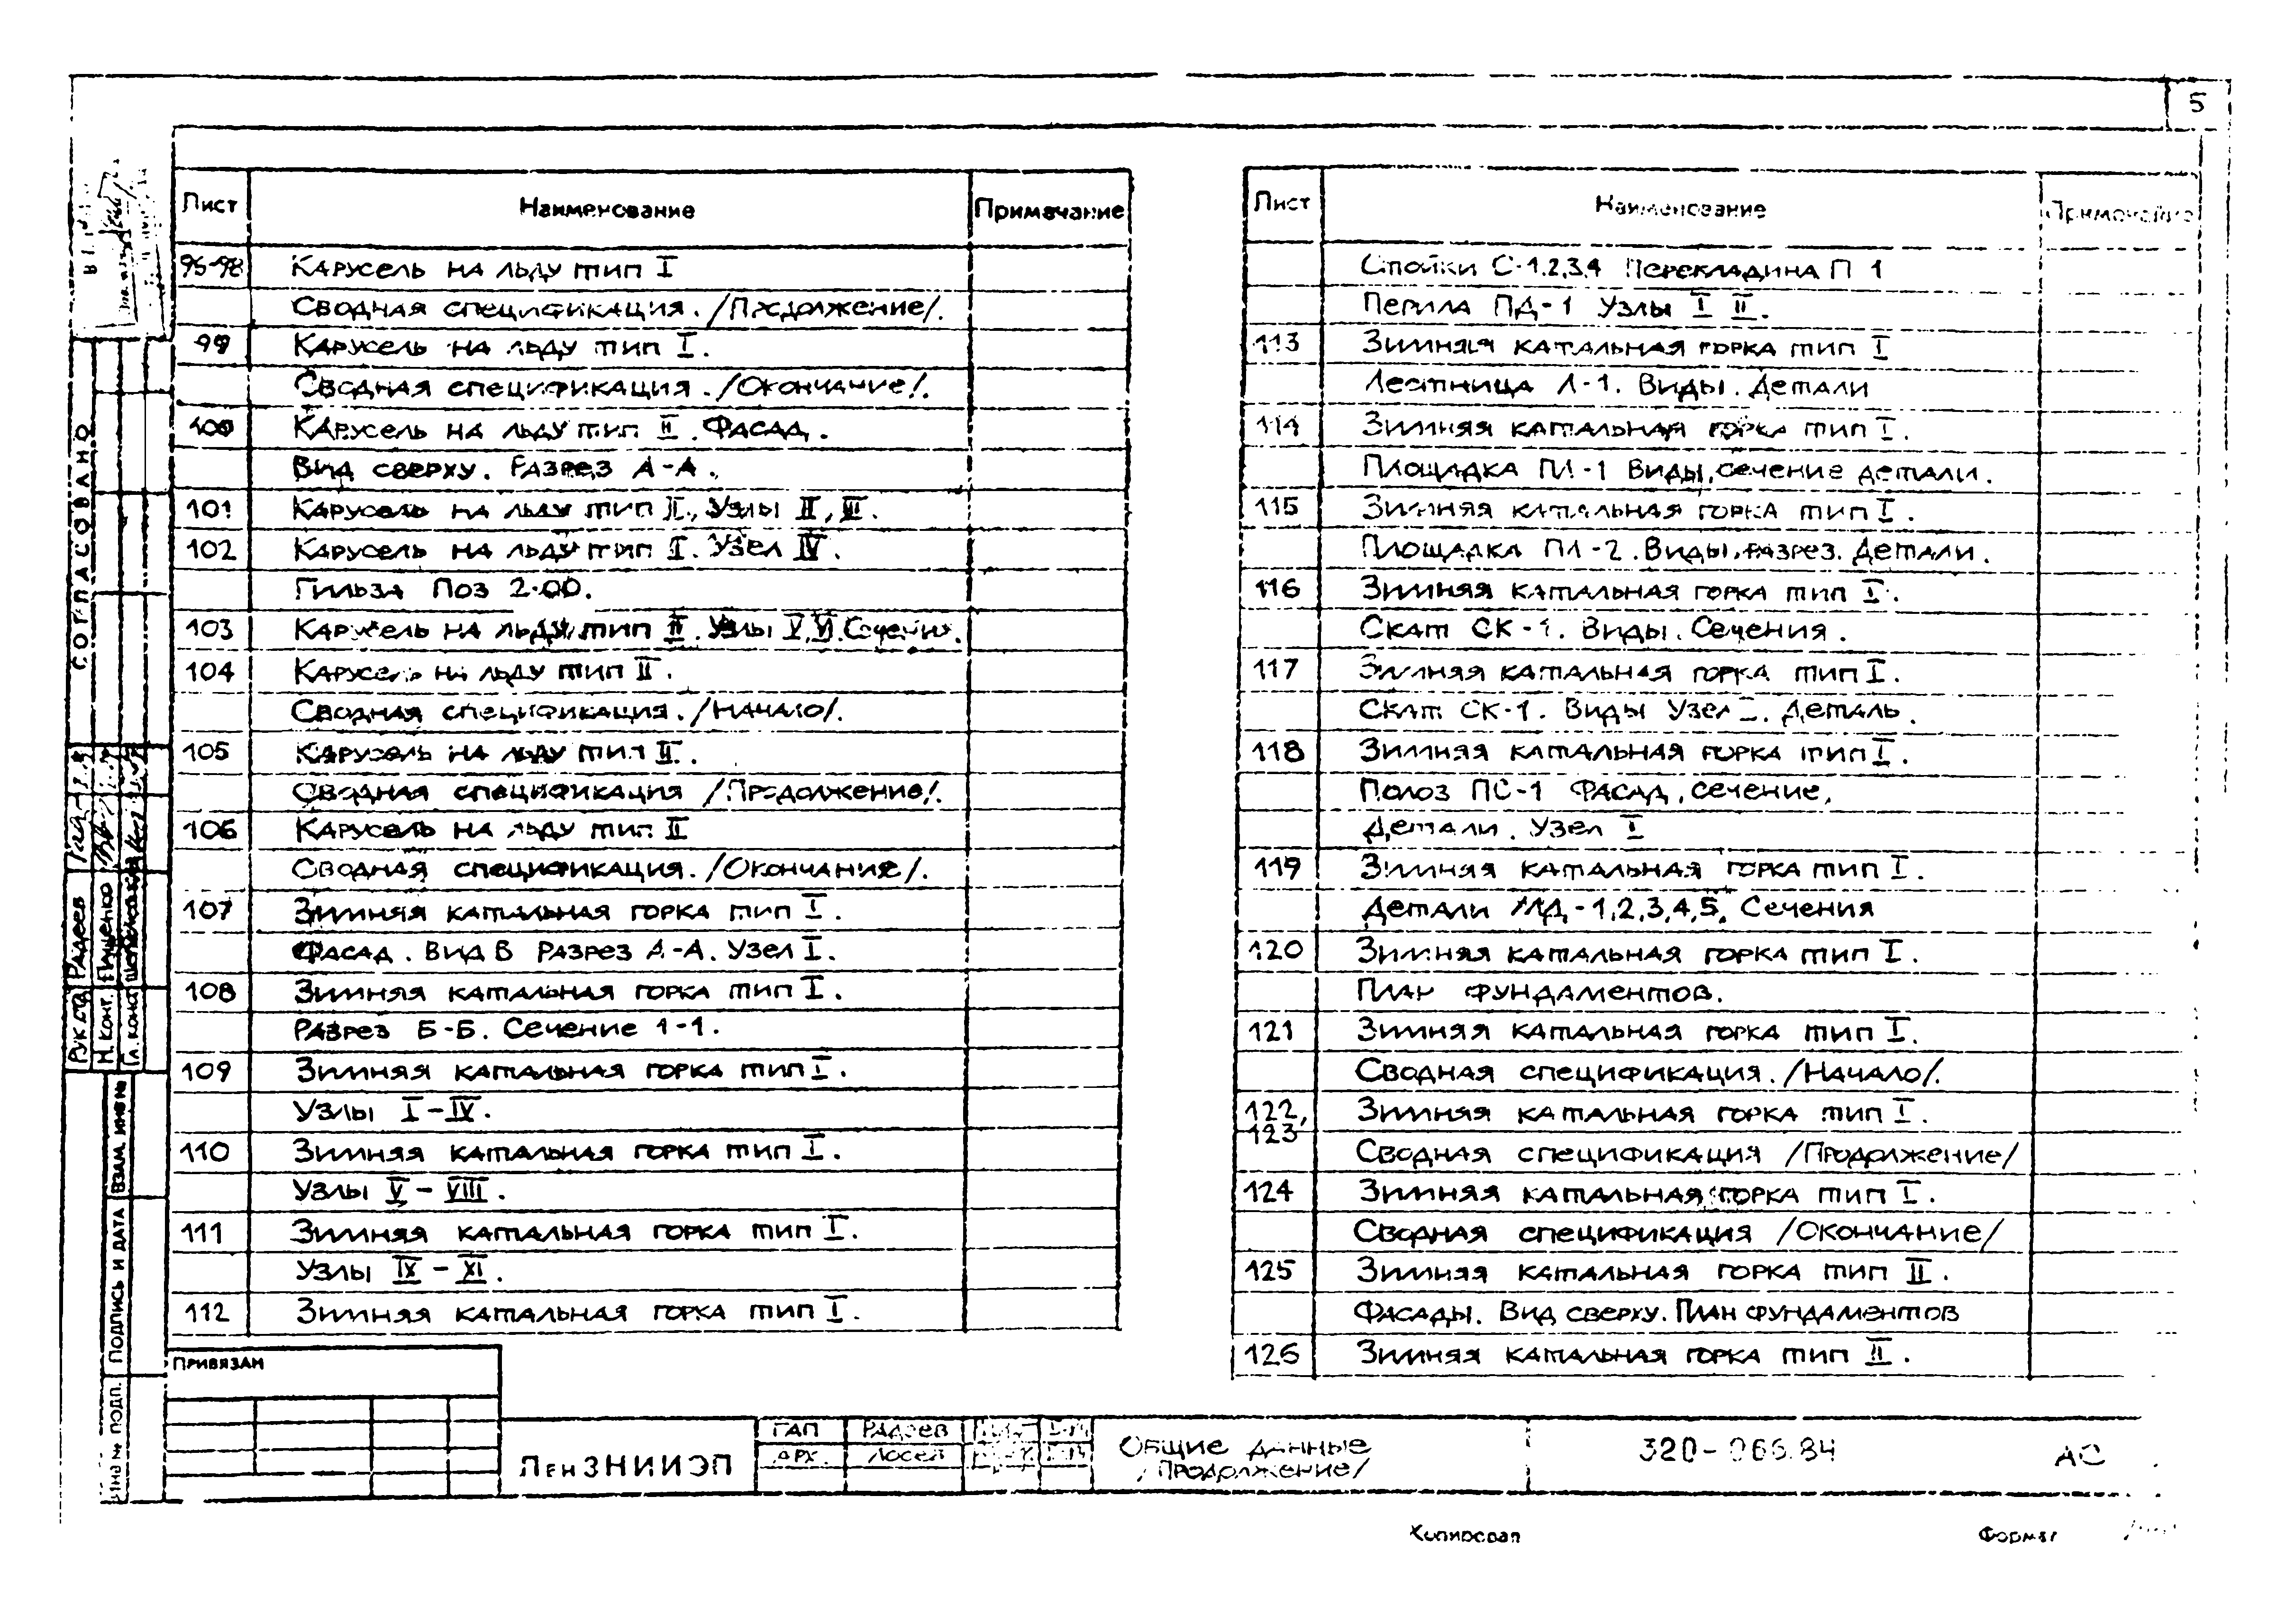 5
Лист Наименование Примечание
96-98 Карусель на льду тип I
Сводная спецификация. /Продолжение/.
99 Карусель на льду тип I.
Сводная спецификация. /Окончание/.
100 Карусель на льду тип II. Фасад.
Вид сверху. Разрез А-А.
101 Карусель на льду тип II, Узлы II, III.
102 Карусель на льду тип II. Узел IV.
Гильза Поз 2.00.
103 Карусель на льду тип II. Узлы V, VI. Сечения.
104 Карусель на льду тип II.
Сводная спецификация. /Начало/.
105 Карусель на льду тип II.
Сводная спецификация /Продолжение/.
106 Карусель на льду тип II
Сводная спецификация. /Окончание/.
107 Зимняя катальная горка тип I.
Фасад. Вид В Разрез А-А. Узел I.
108 Зимняя катальная горка тип I.
Разрез Б-Б. Сечение 1-1.
109 Зимняя катальная горка тип I.
Узлы I-IV.
110 Зимняя катальная горка тип I.
Узлы V-VIII.
111 Зимняя катальная горка тип I.
Узлы IX-XI.
112 Зимняя катальная горка тип I.
Лист Наименование Примечание
Стойки С-1,2,3,4 Перекладина П 1
Перила ПД-1 Узлы I II.
113 Зимняя катальная горка тип I
Лестница Л-1. Виды. Детали
114 Зимняя катальная горка тип I.
Площадка ПЛ-1 Виды, сечение детали.
115 Зимняя катальная горка тип I.
Площадка ПЛ-2. Виды, разрез. Детали.
116 Зимняя катальная горка тип I.
Скат СК-1. Виды. Сечения.
117 Зимняя катальная горка тип I.
Скат СК-1. Виды Узел I. Деталь.
118 Зимняя катальная горка тип I.
Полоз ПС-1 Фасад, сечение,
Детали. Узел I
119 Зимняя катальная горка тип I.
Детали МД-1,2,3,4,5, Сечения
120 Зимняя катальная горка тип I.
План фундаментов.
121 Зимняя катальная горка тип I.
Сводная спецификация. /Начало/.
122, Зимняя катальная горка тип I.
123
Сводная спецификация /Продолжение/
124 Зимняя катальная горка тип I.
Сводная спецификация /Окончание/
125 Зимняя катальная горка тип II.
Фасады. Вид сверху. План фундаментов
126 Зимняя катальная горка тип II.
СОГЛАСОВАНО
Рук отд Радеев
Н. конт. Гищенко
Гл. конст
Взам. инв №
Подпись и дата
Инв № подл.
Привязан
ЛенЗНИИЭП
ГАП Радеев
Арх. Лосев
Общие данные
/Продолжение/
320-066.84
АС
Копировал
Формат